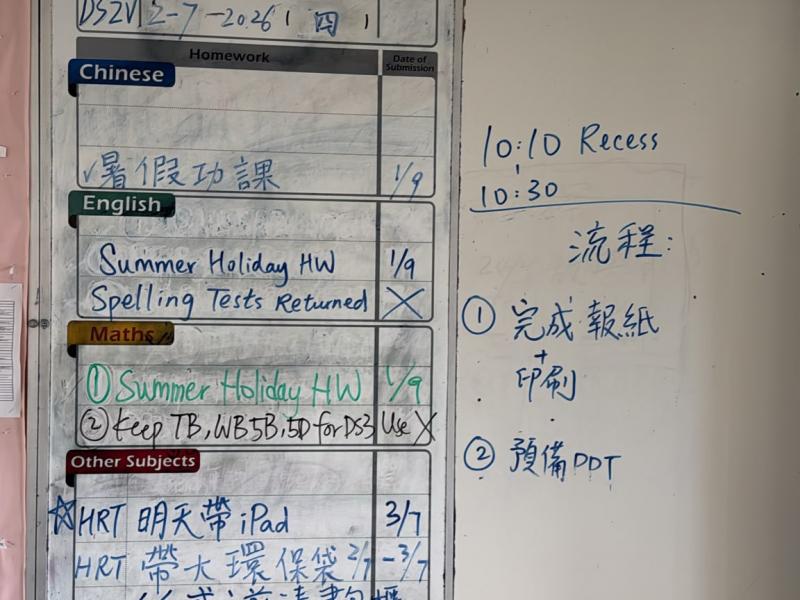 DS2V 2-7-2026 (四)
Homework
Date of Submission
Chinese
✓暑假功課 1/9
English
Summer Holiday HW 1/9
Spelling Tests Returned X
Maths
① Summer Holiday HW 1/9
② Keep TB, WB5B, 5D for DS3 Use X
Other Subjects
☆HRT 明天帶 iPad 3/7
HRT 帶大環保袋 2/7 - 3/7
10:10 Recess
10:30
流程:
① 完成報紙
+
印刷
② 預備PDT